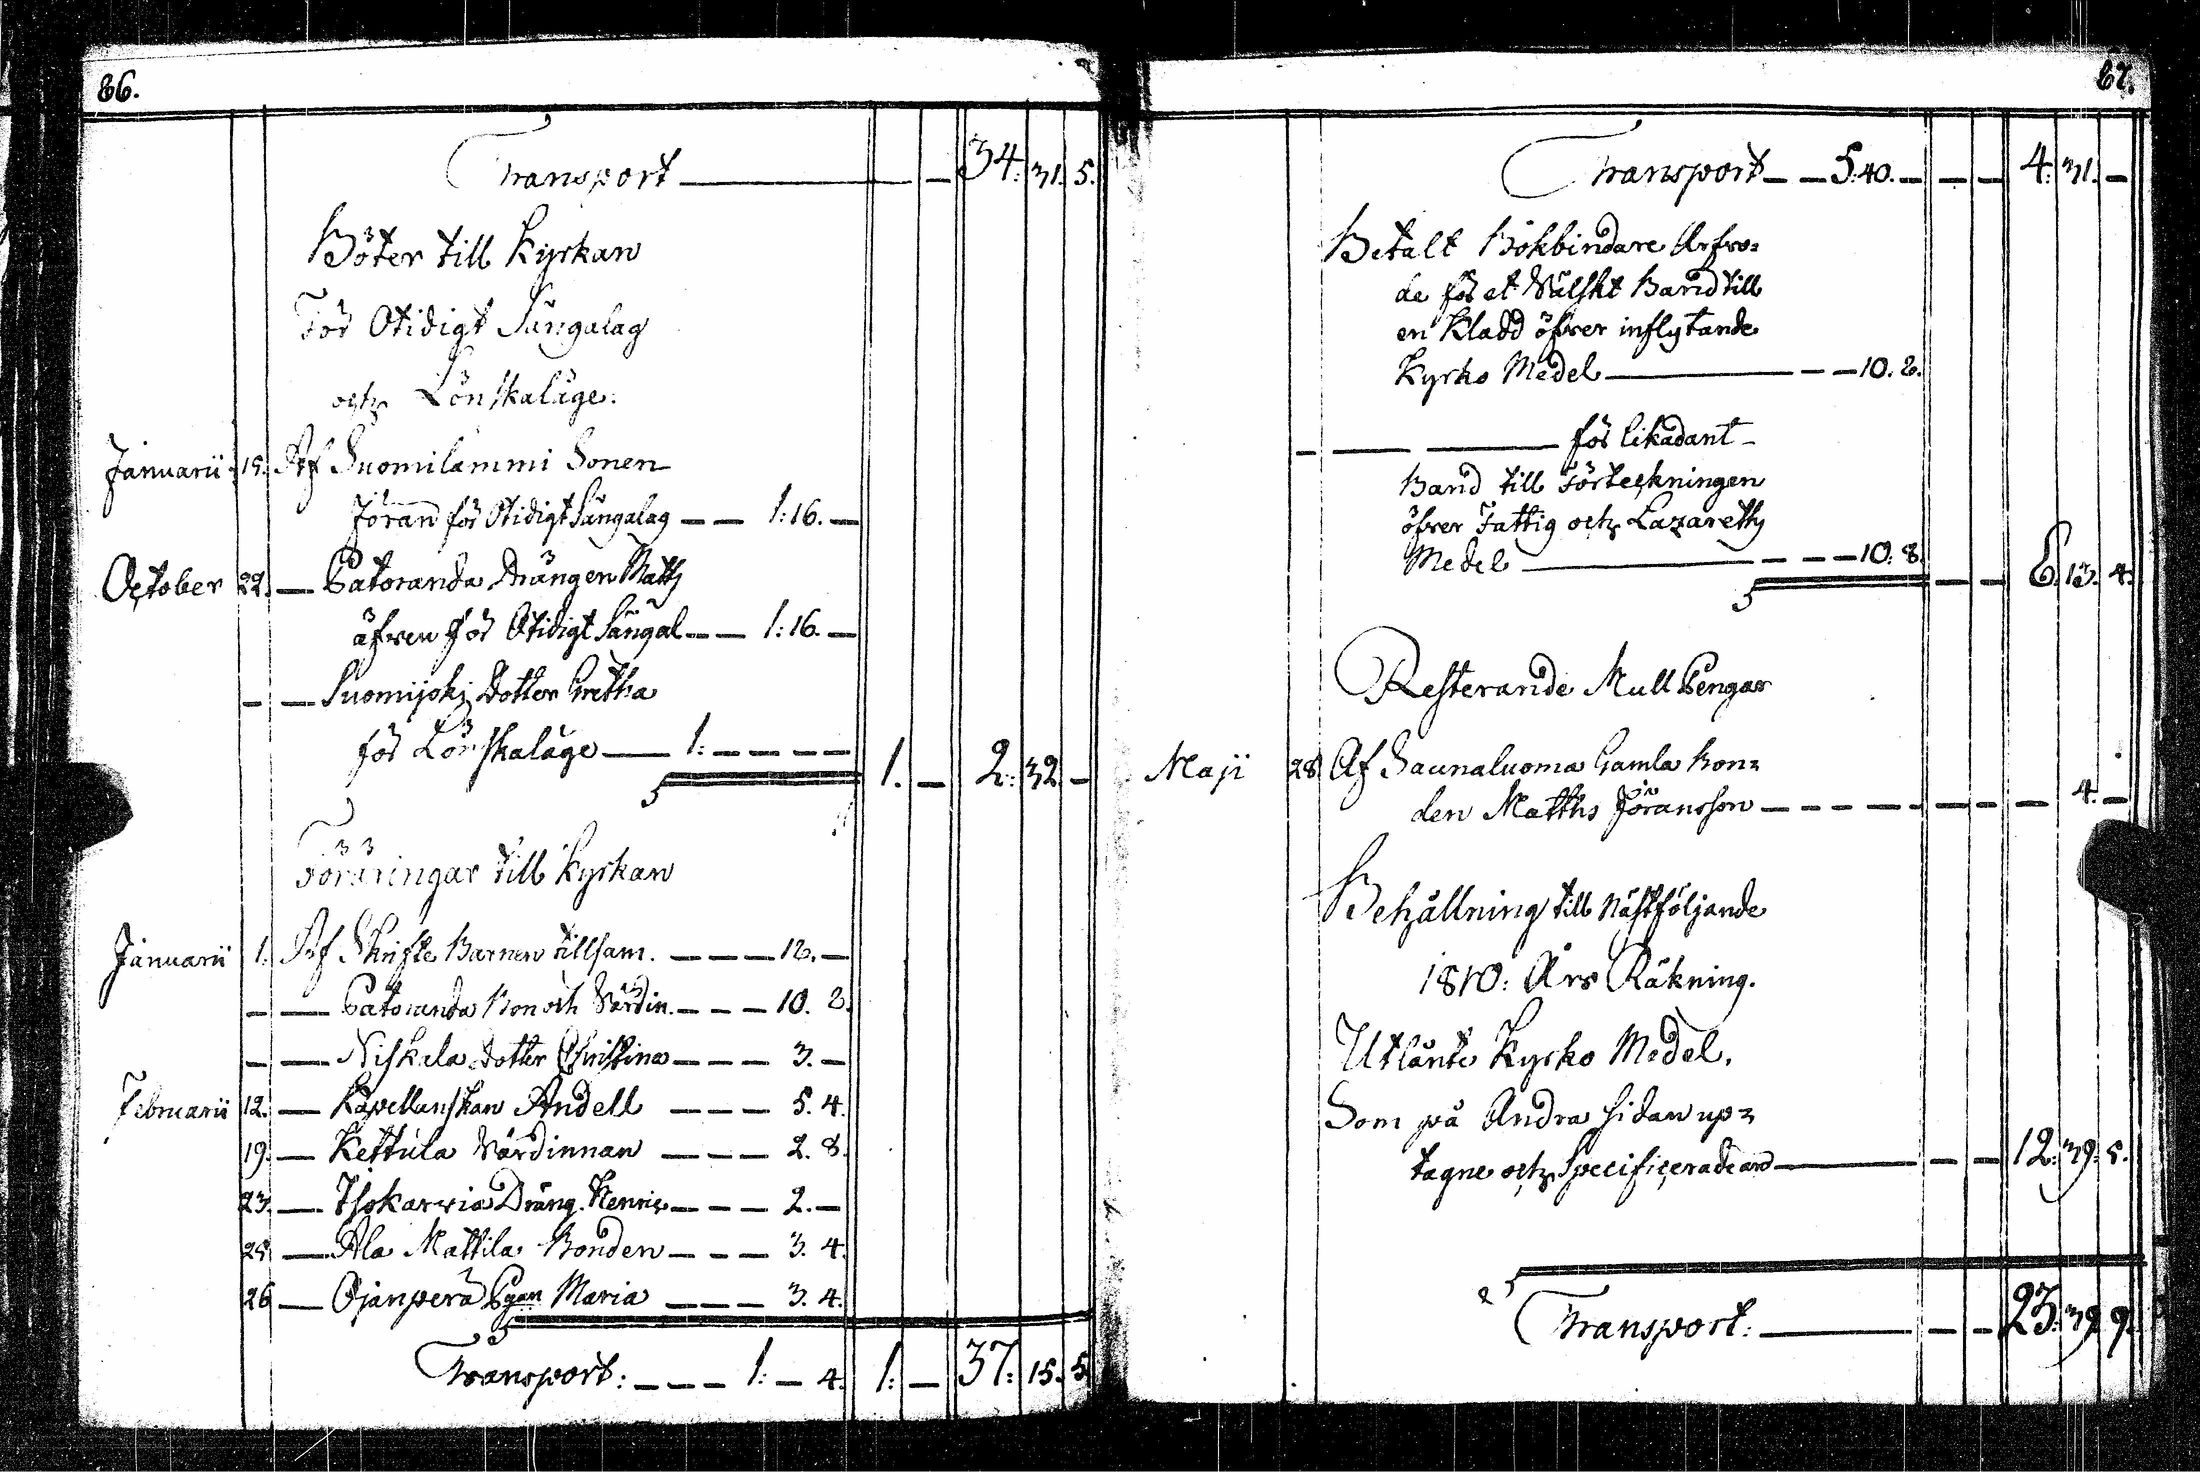 86.
Transport — — 34: 31. 5.
Böter till Kyrkan
För Otidigt Sängalag
och Lönskaläge.
Januarii 15. Af Suomilammi Sonen
Jöran för Otidigt Sängalag — — 1: 16. —
October 22. — Patoranda Drängen Matts
äfwen för Otidigt Sängal — — 1: 16. —
— — Suomijoki Dotter Gretha
för Lönskaläge — 1: — — — — 1. — 2: 32. —
Föräringar till Kyrkan
Januarii 1. Af Skrifte Barnen tillsam. — — — 12. —
— — Patoranda Bon och Värdin. — — — 10. 8.
— — Niskala Dotter Christina — — — 3. —
Februarii 12. — Kapellanskan Andell — — — 5. 4.
19. — Kettula Värdinnan — — — 2. 8.
23. — Isokarvia Dräng. Henric — — — 2. —
25 — Ala Mattila Bonden — — — 3. 4.
26 — Ojanperä Pgan Maria — — — 3. 4.
Transport: — — — 1: — 4. 1: — 37: 15. 5
87.
Transport — — 5: 40. — — — 4: 31. —
Betalt Bokbindare Arfwo=
de för et Wälskt Band till
en Kladd öfwer inflytande
Kyrko Medel — — — 10. 8.
— — — för likadant
Band till Förteckningen
öfwer Fattig och Lazaretts
Medel — — — — 10: 8. — — 6. 13. 4.
Resterande Mull Pengar
Maji 28 Af Saunaluoma Gamla Bon=
den Matths Jöransson — — — — — — — — 4. —
Behållning till Nästföljande
1810: Års Räkning.
Utlånte Kyrko Medel.
Som på Andra sidan up=
tagne och Specificerade äro — — — 12: 39: 5.
Transport: — — — 23: 39. 9.